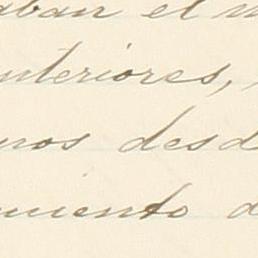 aban el m
nteriores,
nos desd
miento d